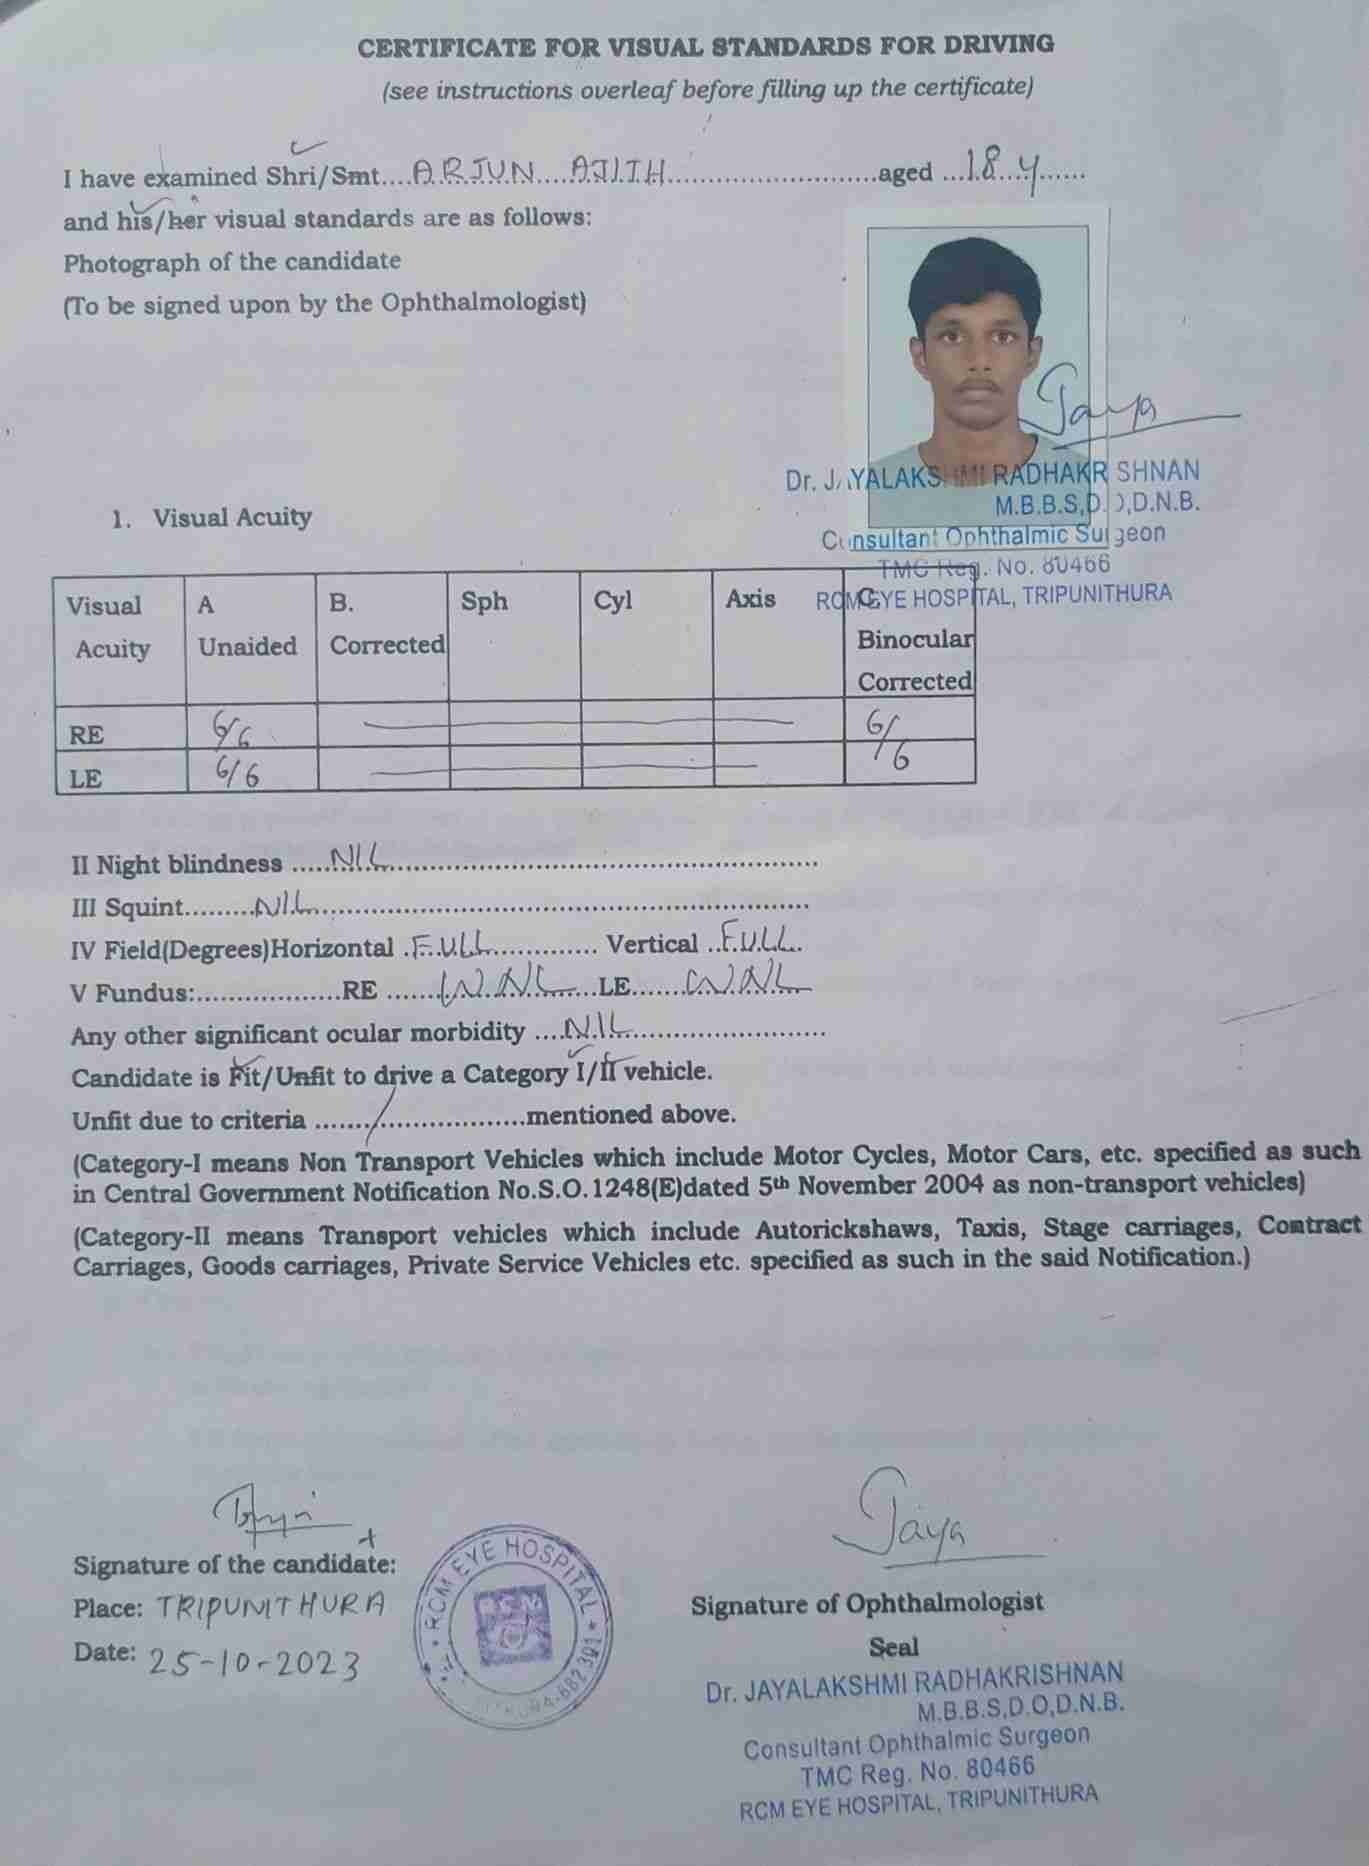 CERTIFICATE FOR VISUAL STANDARDS FOR DRIVING
(see instructions overleaf before filling up the certificate)
I have examined Shri/Smt....ARJUN AJITH..............................aged ...18 y......
and his/her visual standards are as follows:
Photograph of the candidate
(To be signed upon by the Ophthalmologist)
Jaya
Dr. JAYALAKSHMI RADHAKRISHNAN
M.B.B.S,D.O,D.N.B.
Consultant Ophthalmic Surgeon
TMC Reg. No. 80466
RCM EYE HOSPITAL, TRIPUNITHURA
1. Visual Acuity
Visual Acuity A Unaided B. Corrected Sph Cyl Axis C. Binocular Corrected
RE 6/6 6/6
LE 6/6
II Night blindness .....NIL..............................................................
III Squint.........NIL..............................................................
IV Field(Degrees)Horizontal .FULL............... Vertical ..FULL..
V Fundus:..................RE .......WNL......LE.......WNL
Any other significant ocular morbidity ....NIL..........................
Candidate is Fit/Unfit to drive a Category I/II vehicle.
Unfit due to criteria ......./..................mentioned above.
(Category-I means Non Transport Vehicles which include Motor Cycles, Motor Cars, etc. specified as such
in Central Government Notification No.S.O.1248(E)dated 5th November 2004 as non-transport vehicles)
(Category-II means Transport vehicles which include Autorickshaws, Taxis, Stage carriages, Contract
Carriages, Goods carriages, Private Service Vehicles etc. specified as such in the said Notification.)
Signature of the candidate:
Place: TRIPUNITHURA
Date: 25-10-2023
RCM EYE HOSPITAL
682 301
RCM
Jaya
Signature of Ophthalmologist
Seal
Dr. JAYALAKSHMI RADHAKRISHNAN
M.B.B.S,D.O,D.N.B.
Consultant Ophthalmic Surgeon
TMC Reg. No. 80466
RCM EYE HOSPITAL, TRIPUNITHURA